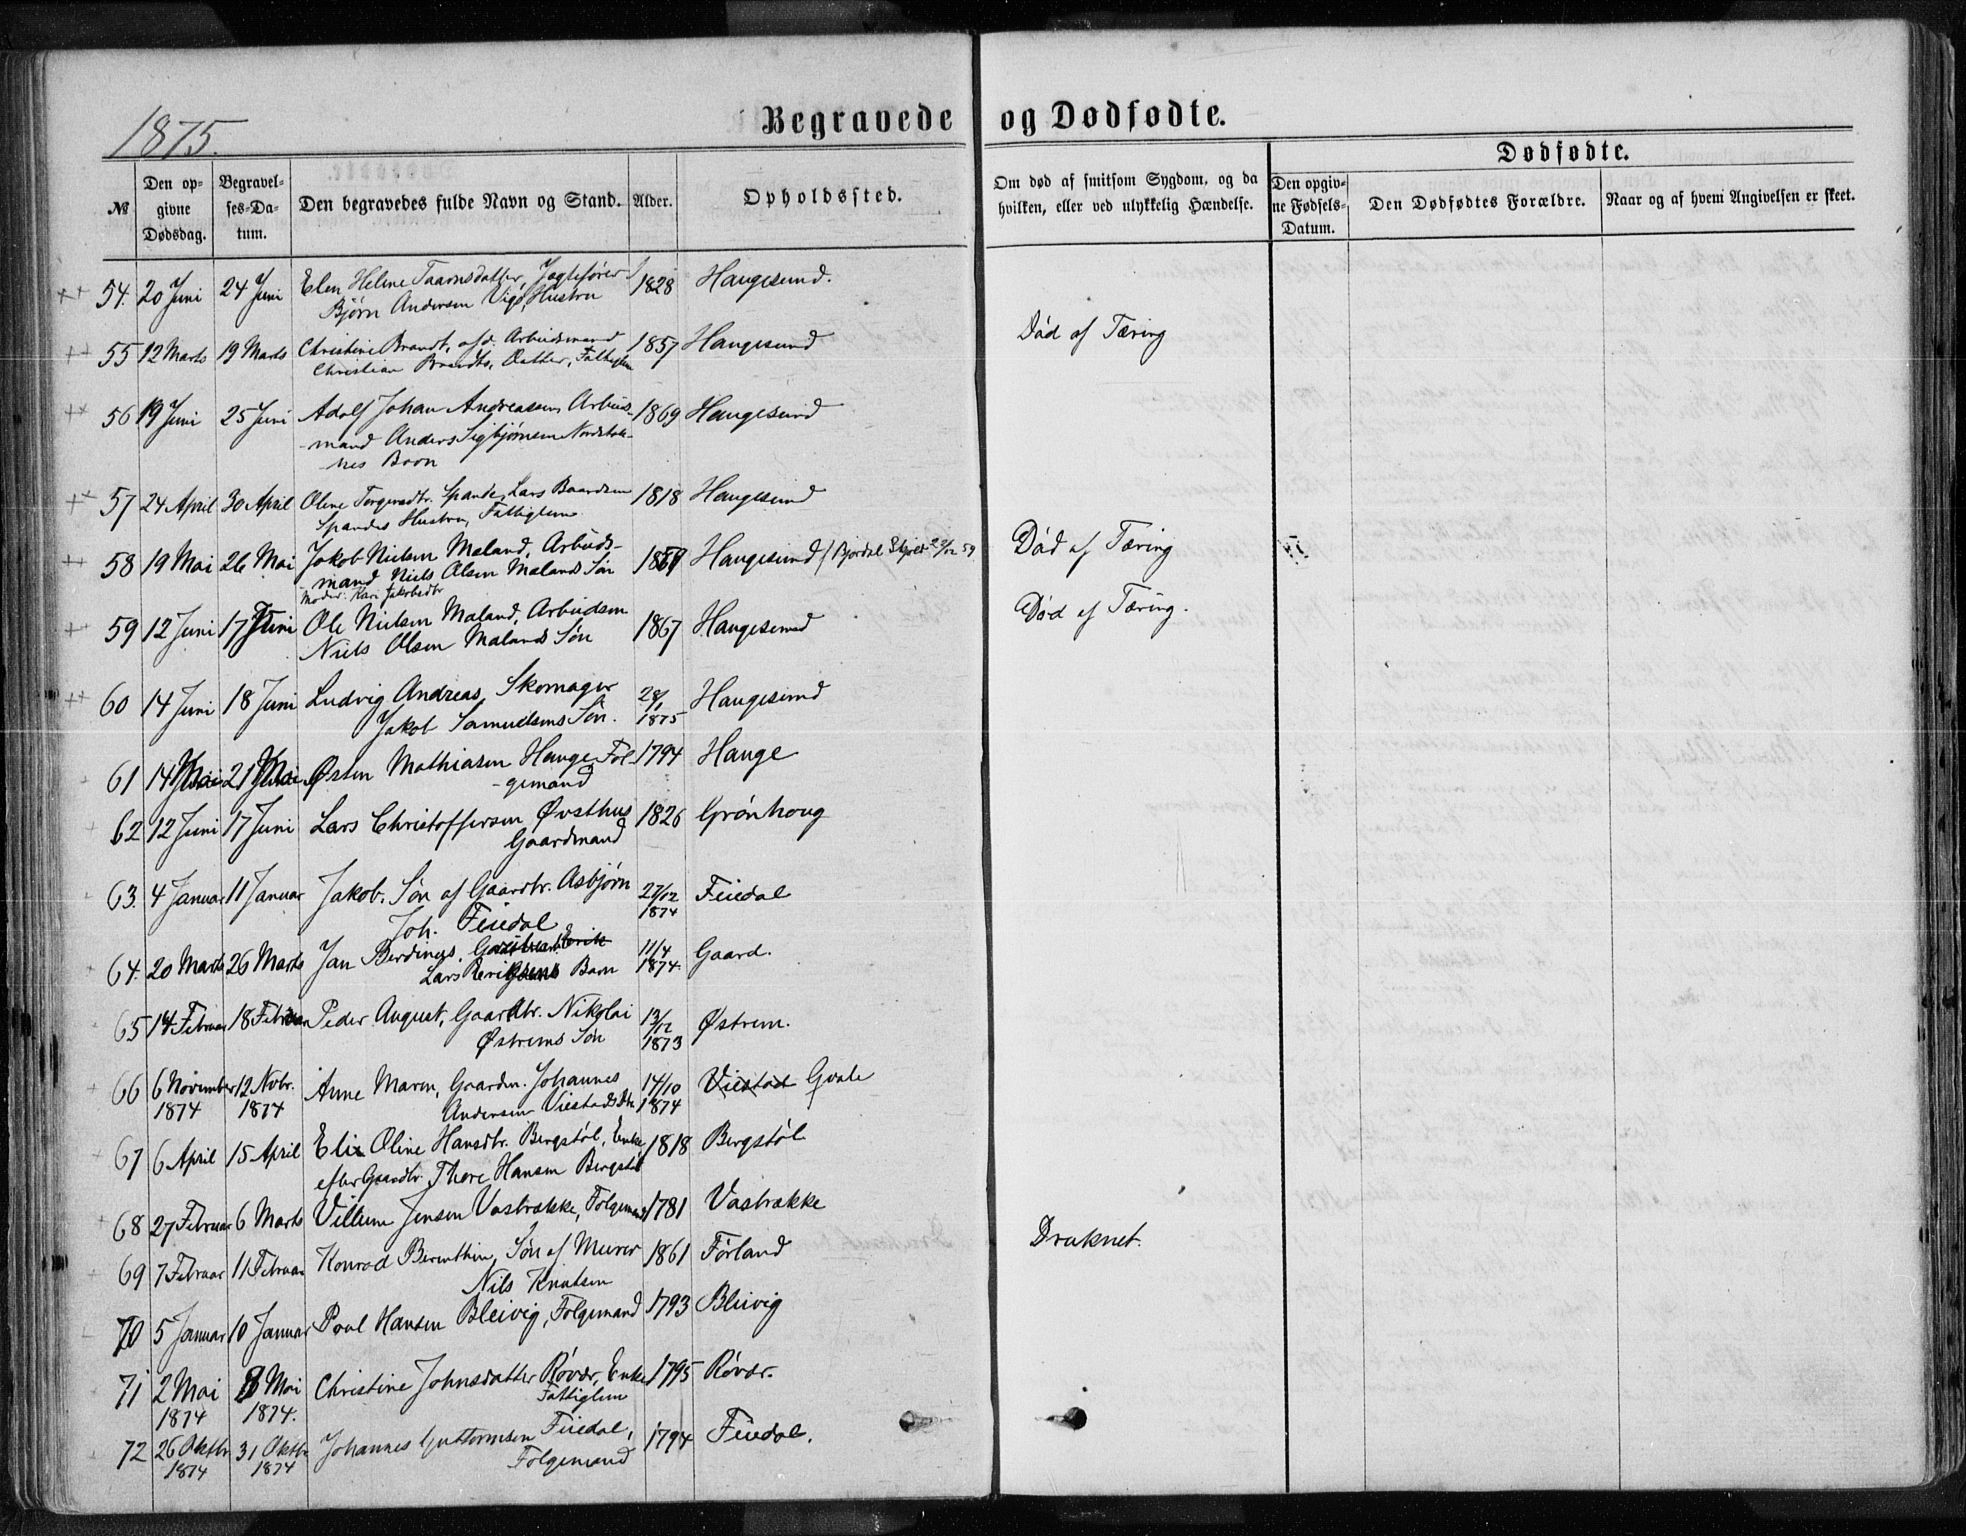 1875.
Begravede og Dødfødte.
Dødfødte.
№
Den opgivne Dødsdag.
Begravelses-Datum.
Den begravedes fulde Navn og Stand.
Alder.
Opholdssted.
Om død af smitsom Sygdom, og da hvilken, eller ved ulykkelig Hændelse.
Den opgivne Fødsels-Datum.
Den Dødfødtes Forældre.
Naar og af hvem Angivelsen er skeet.
54. 20 Juni 24 Juni Elen Helene Taarnsdatter, Jagtefører 1828 Haugesund.
Bjørn Andersen Viges Hustru
55 12 Marts 19 Marts Christine Brandt, afd. Arbeidsmand 1857 Haugesund Død af Tæring
Christian Brandts, Datter, Fattiglem
56 19 Juni 25 Juni Adolf Johan Andreasen, Arbeids- 1869 Haugesund
mand Anders Sigbjørnsen
nes Barn
57 24 April 30 April Oline Torgersdtr. Spande, Lars Baardsen 1818 Haugesund
Spandes Hustru, Fattiglem
58 19 Mai 26 Mai Jakob Nielsen Maland, Arbeids- 1859 Haugesund (Bjordal Skjold 22/12 59 Død af Tæring
mand Niels Olsen Malands Søn
Moder: Kari Jakobsdtr
59 12 Juni 17 Juni Ole Nielsen Maland, Arbeidsm 1867 Haugesund Død af Tæring.
Niels Olsen Malands Søn
60 14 Juni 18 Juni Ludvig Andreas, Skomager 28/1 1875 Haugesund
Jakob Samuelsens Søn.
61 14 Mai 21 Mai Østen Mathiasen Hauge Fol- 1794 Hauge
gemand
62 12 Juni 17 Juni Lars Christoffersen Øvsthus 1826 Grønhoug
Gaardmand
63. 4 Januar 11 Januar Jakob. Søn af Gaardbr. Asbjørn 27/12 1874 Feiedal
Joh. Feiedal
64. 20 Marts 26 Marts Jan Berdines, 11/4 1874. Gaard.
Lars Barn
65 14 Februar 18 Februar Peder August, Gaardbr. Nikolai 13/12 1873 Østrem.
Østrems Søn
66 6 November 1874 12 Novbr. 1874 Anne Maren, Gaardm. Johannes 14/10 1874 Viestad Gvale
Andersen Viestads Dtr
67 6 April 15 April Eli Oline Hansdtr. Bergstøl, Enke 1818 Bergstøl
efter Gaardbr. Thore Hansen Bergstøl
68 27 Februar 6 Marts Villum Jensen Vastrække, Folgemand 1781 Vastrække
69 7 Februar 11 Februar Konrad Berenthin, Søn af Murer 1861 Førland Druknet.
Nils Knutsen
70 5 Januar 10 Januar Poul Hansen Bleivig, Folgemand 1793 Bleivig
71 2 Mai 1874 8 Mai 1874. Christine Johnsdatter Røvær, Enke 1795 Røvær.
Fattiglem
72 26 Oktbr 1874 31 Oktbr 1874 Johannes Guttormsen Feiedal, 1794 Feiedal.
Folgemand